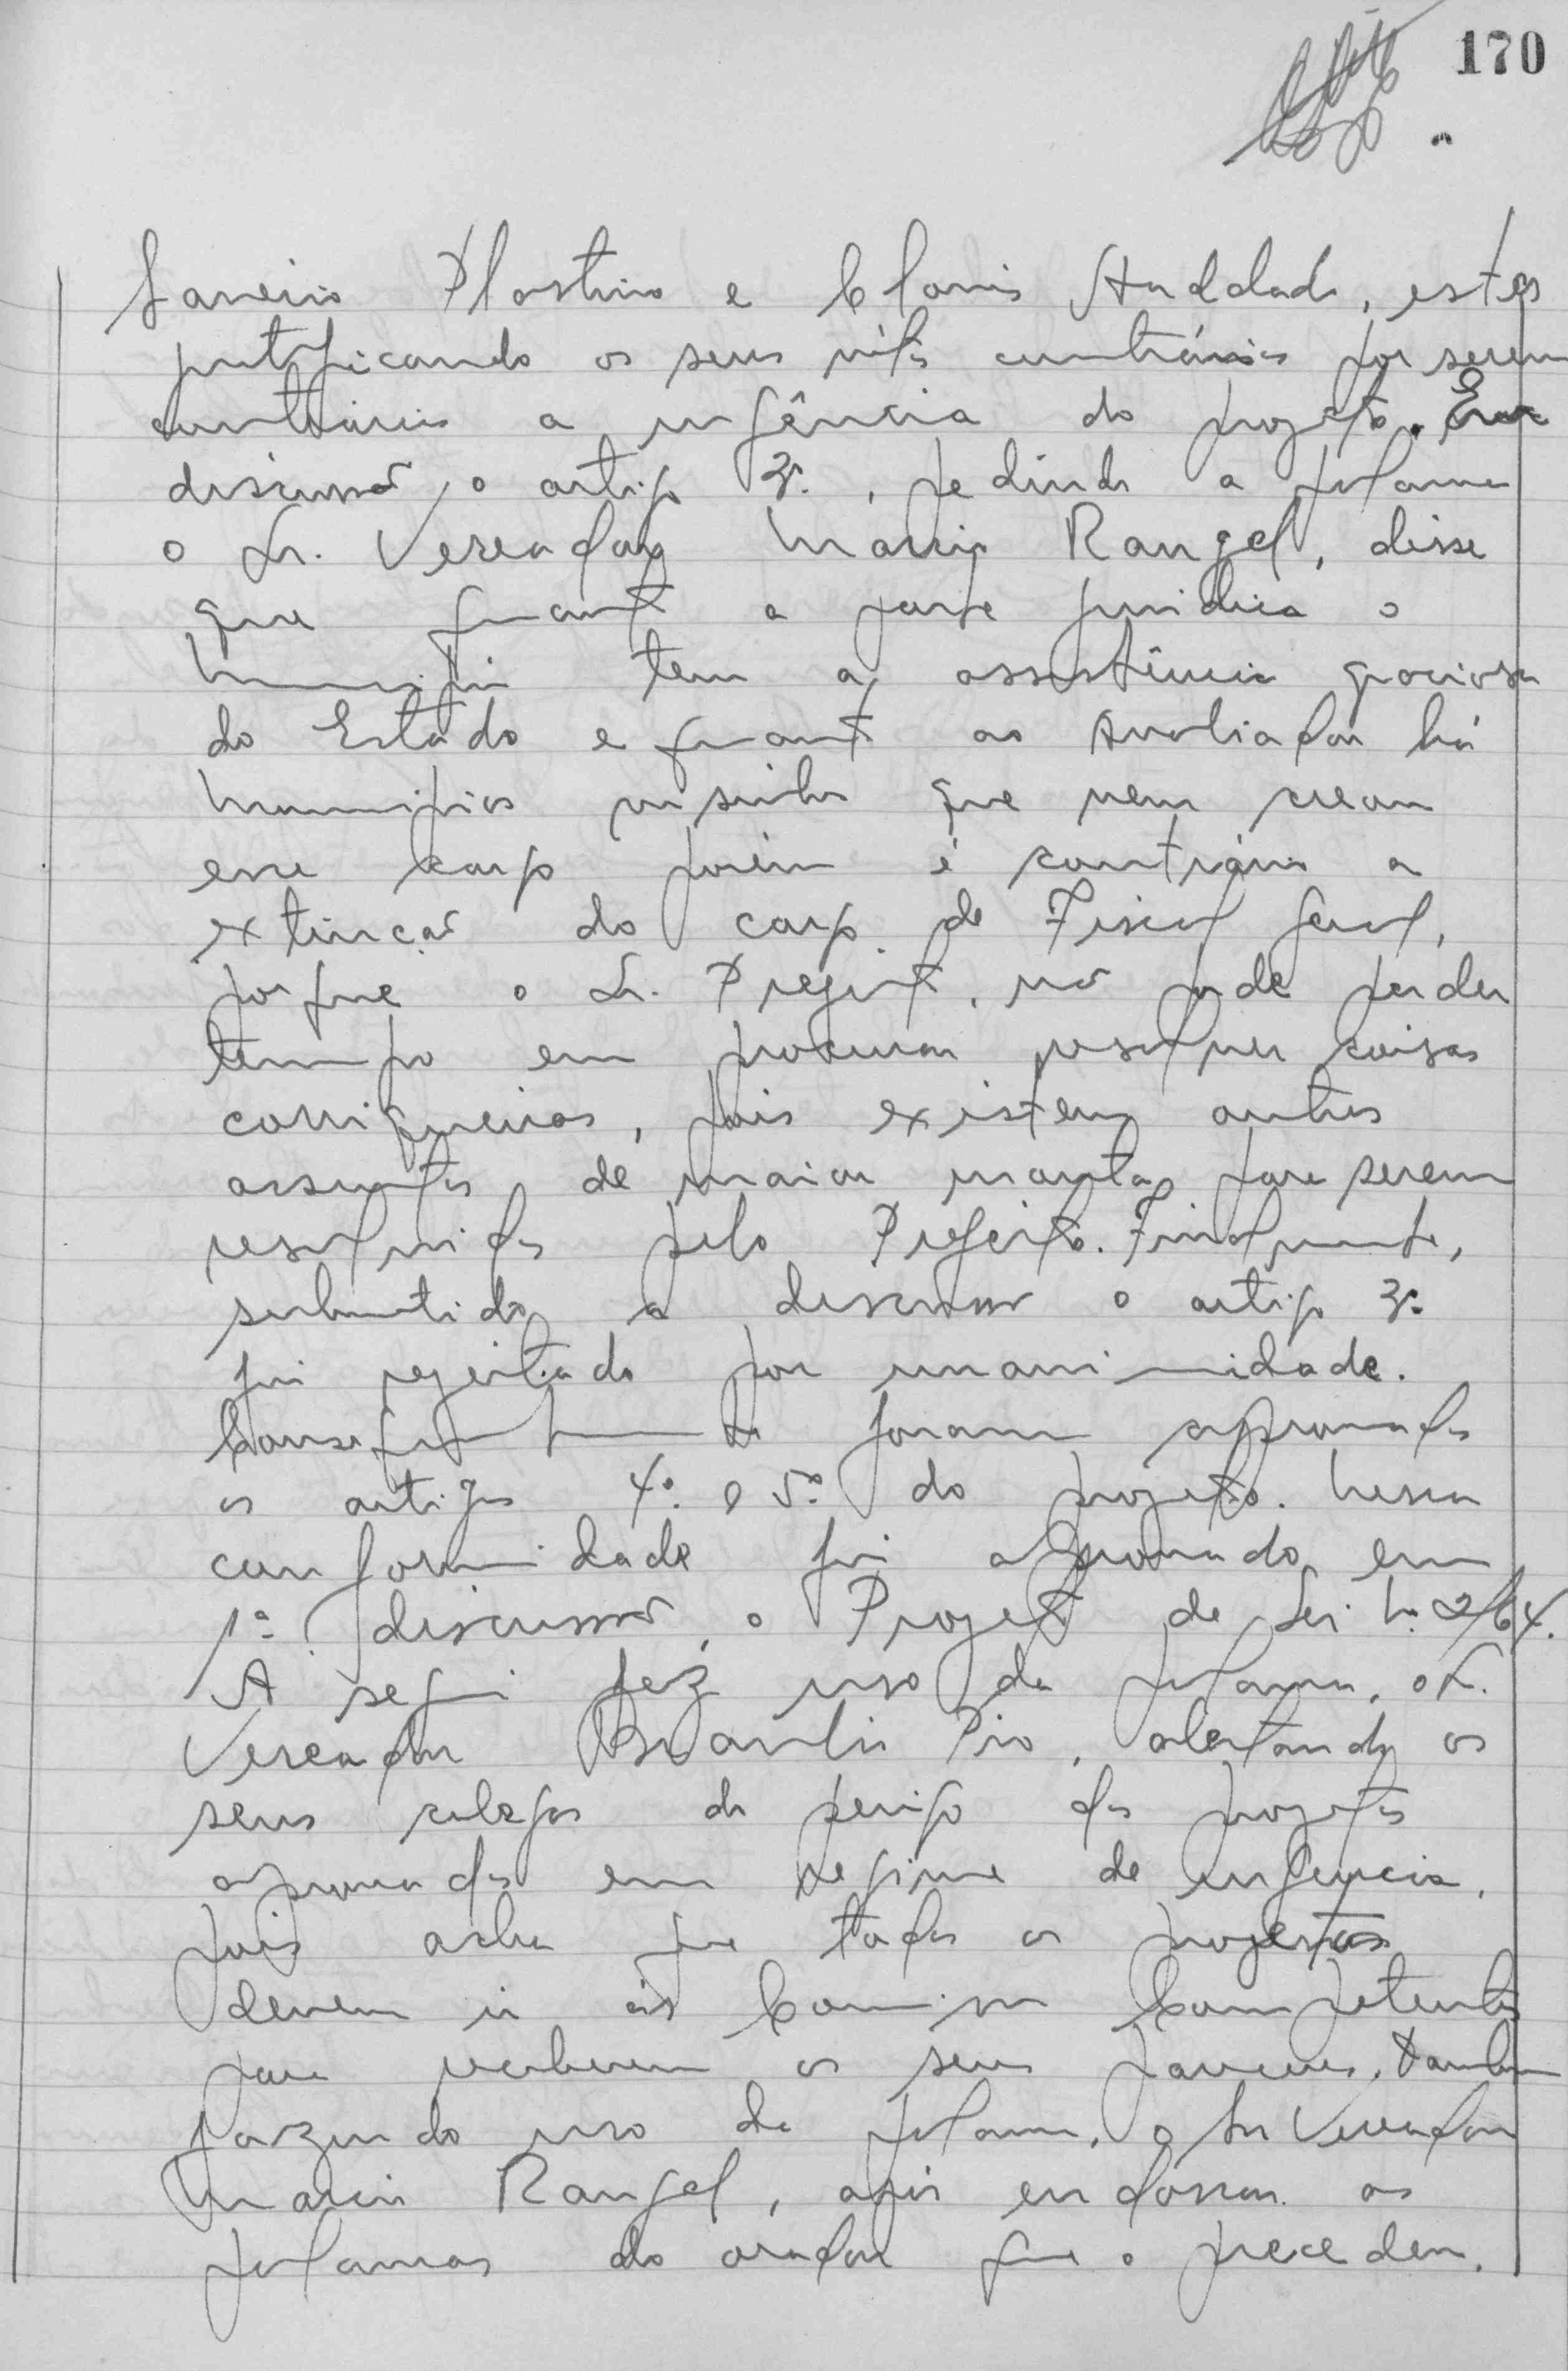 170
Janeiro Plastino e Clovis Haddad, estes
justificando os seus votos contrários por serem
contrários a urgência do projeto. Em
discussão o artigo 3º, pedindo a palavra
o Sr. Vereador Mario Rangel, disse
que quanto a parte juridica o
Municipio tem a assistência graciosa
do Estado e quanto ao Avaliador há
Municipios visinhos que nem cream
esse cargo porém é contrário a
extinção do cargo de Fiscal Geral,
porque o Sr. Prefeito, não pode perder
tempo em procurar resolver coisas
corriqueiras, pois existem outros
assuntos de maior monta para serem
resolvidos pelo Prefeito. Finalmente,
submetido a discussão o artigo 3º
foi rejeitado por unanimidade.
Consequentemente foram aprovados
os artigos 4º e 5º do projeto. Nessa
conformidade foi aprovado em
1ª discussão, o Projeto de Lei N. 2/64.
A seguir fez uso da palavra, o Sr.
Vereador Braulio Pio, alertando os
seus colegas do perigo dos projetos
aprovados em regime de urgencia,
pois acha que todos os projetos
devem ir ás Comissões Competentes
para receberem os seus pareceres. Também
fazendo uso da palavra, o Sr Vereador
Mario Rangel, após endossar as
palavras do orador que o precedeu,